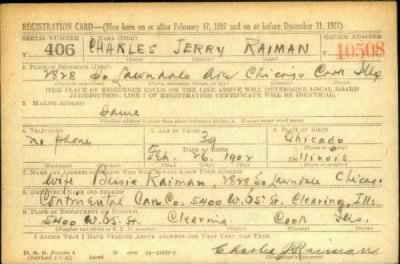 REGISTRATION CARD—(Men born on or after February 17, 1897 and on or before December 31, 1921)
SERIAL NUMBER 1. NAME (Print) ORDER NUMBER
406 CHARLES JERRY RAIMAN 10508
2. PLACE OF RESIDENCE (Print)
2828 So Lawndale Ave Chicago Cook Ills
[THE PLACE OF RESIDENCE GIVEN ON THE LINE ABOVE WILL DETERMINE LOCAL BOARD
JURISDICTION; LINE 2 OF REGISTRATION CERTIFICATE WILL BE IDENTICAL]
3. MAILING ADDRESS
Same
4. TELEPHONE 5. AGE IN YEARS 6. PLACE OF BIRTH
no phone 39 Chicago
DATE OF BIRTH
Feb. 26, 1902 Illinois
7. NAME AND ADDRESS OF PERSON WHO WILL ALWAYS KNOW YOUR ADDRESS
Wife Raiman, 2828 So Lawndale Chicago
8. EMPLOYER'S NAME AND ADDRESS
Continental Can Co. 5400 W. 65 St. Clearing, Ills.
9. PLACE OF EMPLOYMENT OR BUSINESS
5400 W. 65 St. Clearing Cook Ills.
I AFFIRM THAT I HAVE VERIFIED ABOVE ANSWERS AND THAT THEY ARE TRUE.
D. S. S. Form 1
Charles J Raiman